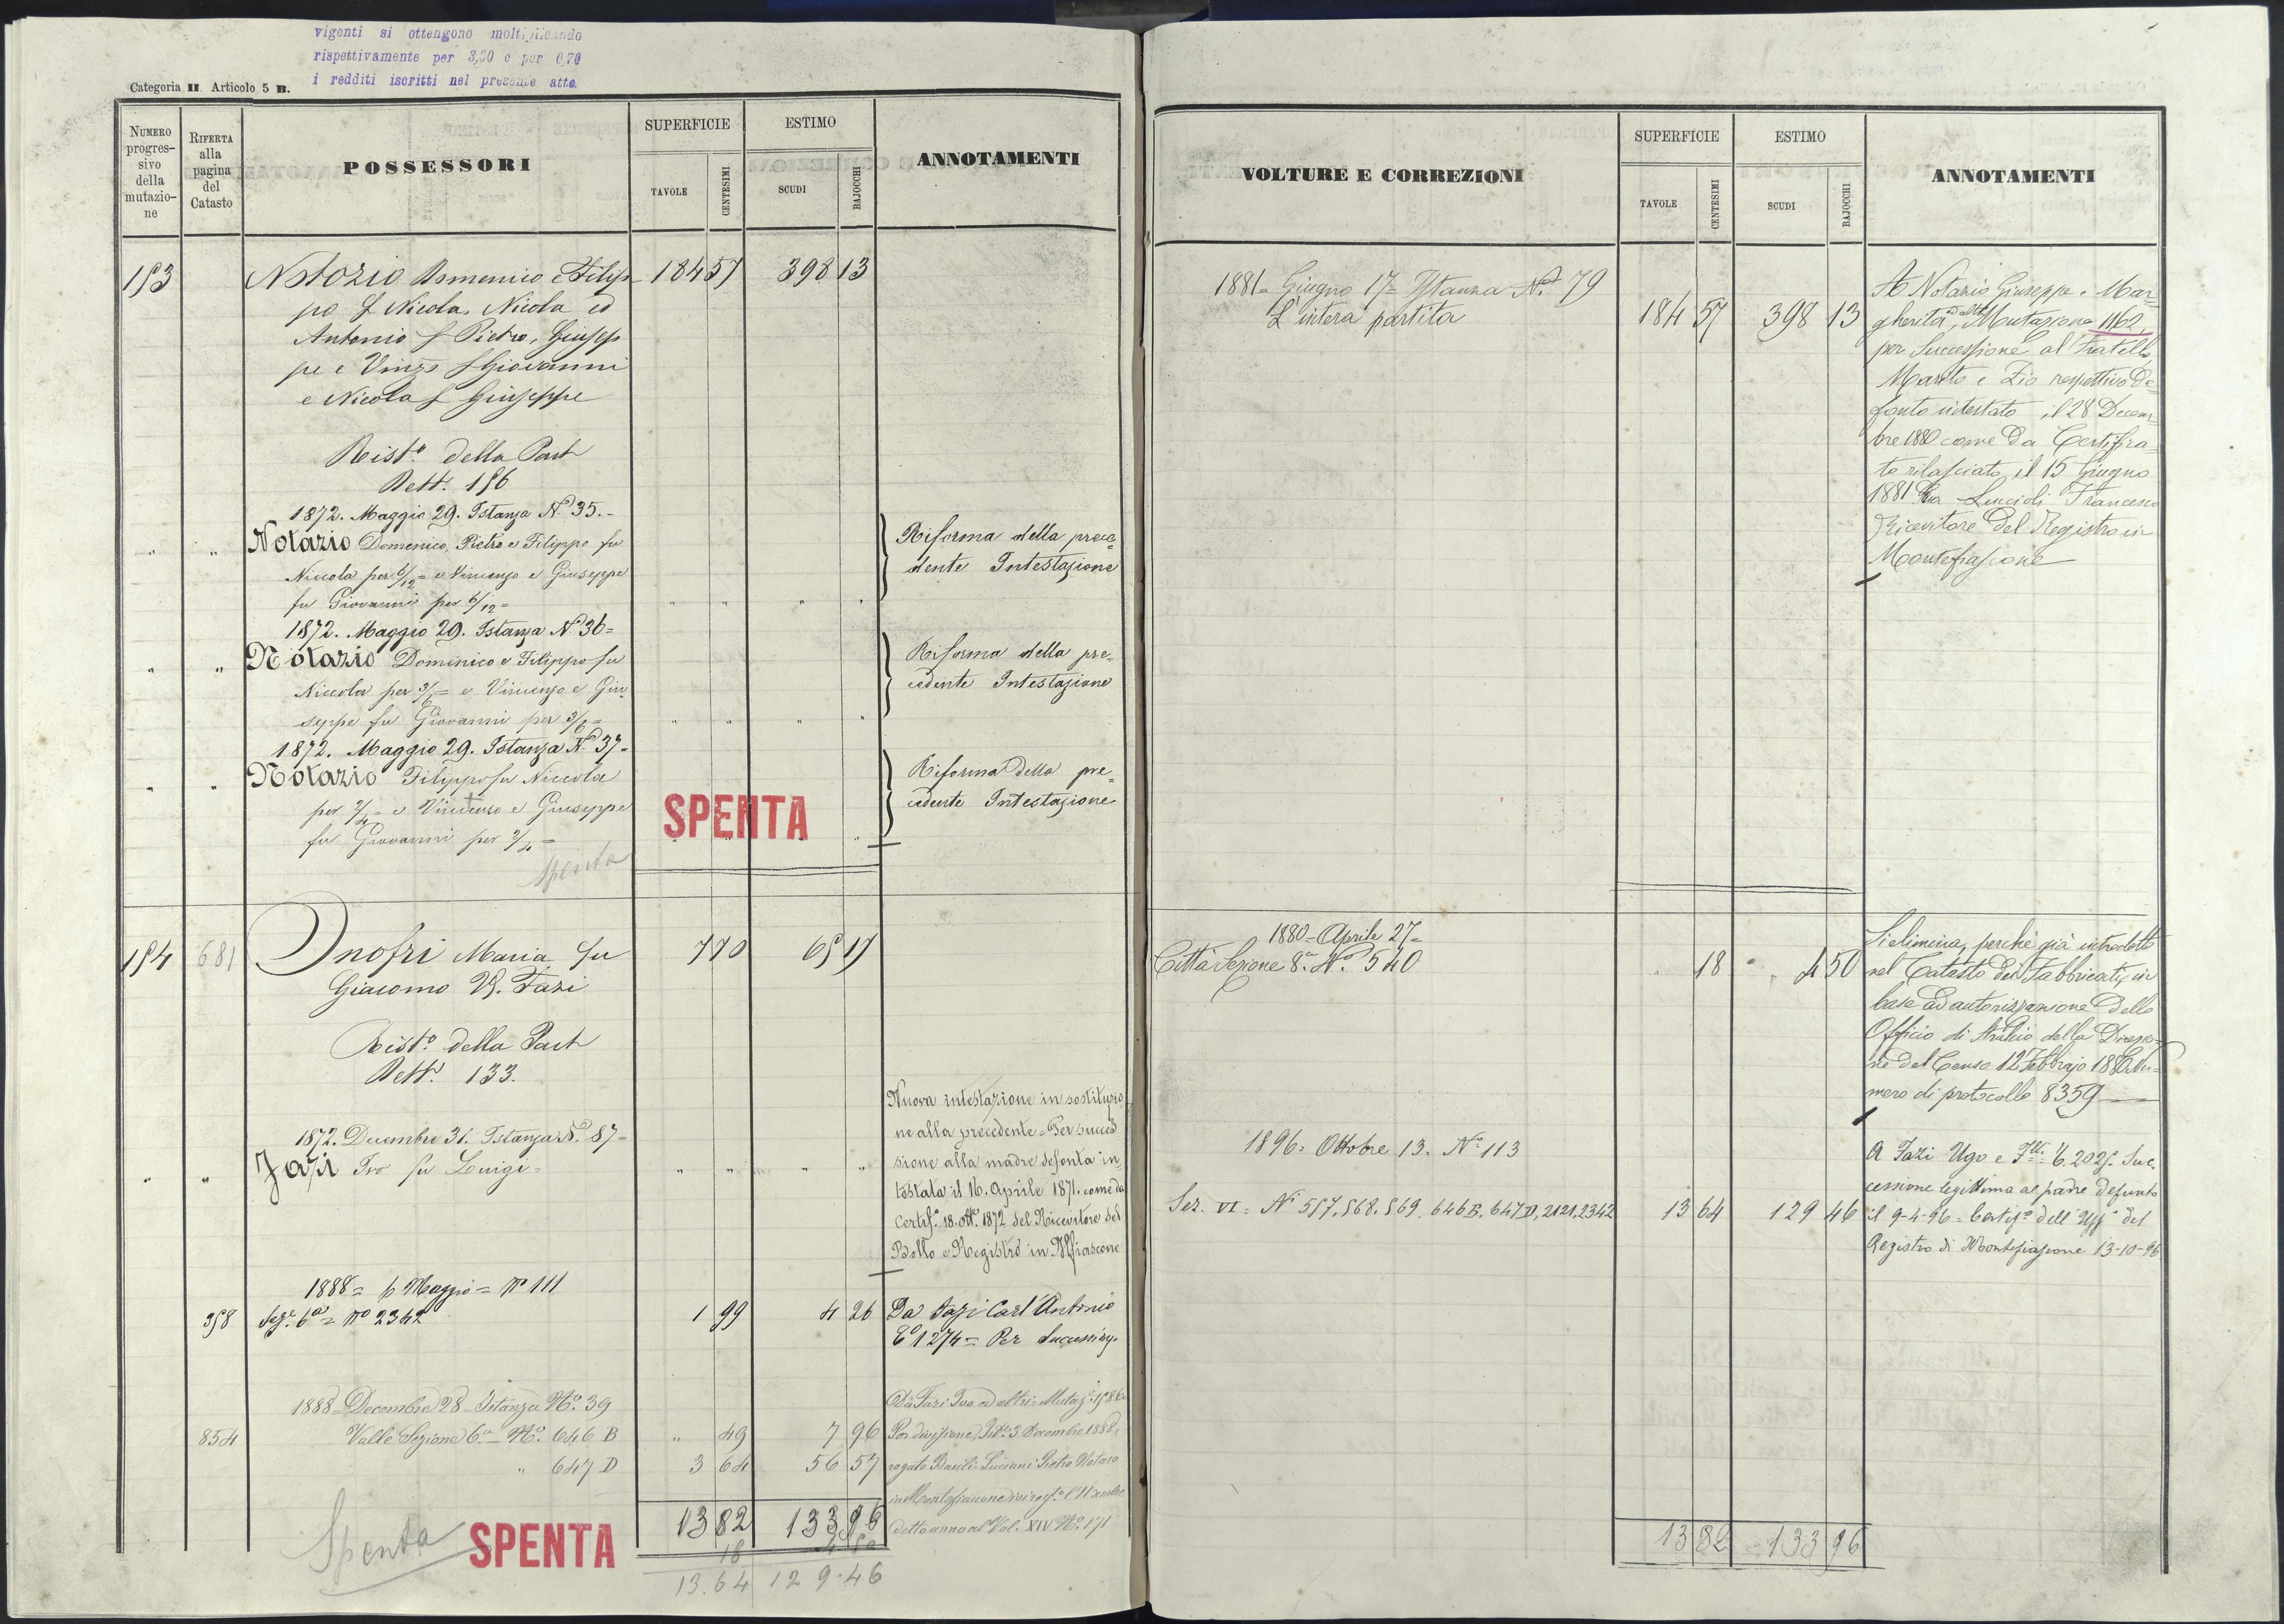 vigenti si ottengono moltiplicando
rispettivamente per 3,30 e per 0,70
i redditi iscritti nel presente atto
Categoria II. Articolo 5 B.
NUMERO progressivo della mutazione
RIFERTA alla pagina del Catasto
POSSESSORI
SUPERFICIE
TAVOLE
CENTESIMI
ESTIMO
SCUDI
BAJOCCHI
ANNOTAMENTI
153
Notozio Domenico e Filip
184 57 398 13
po f Nicola, Nicola ed
Antonio f Pietro, Giusep
pe e Vinzo f Giovanni
e Nicola f Giuseppe
Rist.o della Part
Rett.
1872. Maggio 29. Istanza N.o 35.-
" " Notazio Domenico, Pietro e Filippo fu
Niccola per 6/12 = e Vincenzo e Giuseppe
fu Giovanni per 6/12 =
" " " "
Riforma della prece
dente Intestazione
1872. Maggio 29. Istanza N.o 36=
" " Notazio Domenico e Filippo fu
Niccola per 3/6 = e Vincenzo e Giu
seppe fu Giovanni per 3/6 =
" " " "
Riforma della pre-
cedente Intestazione
1872. Maggio 29. Istanza N.o 37-
" " Notazio Filippo fu Niccola
per 2/4 = e Vincenzo e Giuseppe
fu Giovanni per 2/4 =
Riforma della pre-
cedente Intestazione
SPENTA
Spenta
154 681
Onofri Maria fu
7 70 65 17
Giacomo V. Fazi
Rist.o della Part
Rett. 133.
1872. Decembre 31. Istanza N.o 87-
" " Fazi Ivo fu Luigi=
" " " "
Nuova intestazione in sostituzio
ne alla precedente - Per succes
sione alla madre defonta in-
testata il 16. Aprile 1871. come da
Certif.o 18. ott.e 1872 del Ricevitore del
Bollo e Registro in Mfiascone
1888= Maggio= N.o 111
358 Sez.e 6a = No 2342
1 99 4 26
Da Fazi Carl'Antonio
1274= Per Successione
1888 Decembre 28 Istanza N.o 39
854 Valle Sezione 6a N.o 646 B
" 49 7 96
" 647 D
3 64 56 57
Da Fazi Ivo ed altri= Mutaz.
Per divisione 3 Decembre 1888,
rogato Basili-Luciani Pietro Notaro
in Montefiascone
detto anno al Vol. XIV N.o 171
13 82 133 96
18 4 50
13.64 129.46
Spenta
SPENTA
VOLTURE E CORREZIONI
SUPERFICIE
TAVOLE
CENTESIMI
ESTIMO
SCUDI
BAJOCCHI
ANNOTAMENTI
1881= Giugno 17= Istanza N.o 79
L'intera partita
184 57 398 13
A Notazio Giuseppe, Mar-
gherita, ed altri Mutazione 1162,
per Successione al Fratello,
Marito e Zio respettivo De-
fonto intestato il 28 Decem-
bre 1880 come da Certifica
to rilasciato il 15 Giugno
1881 da Lucioli Francesco
Ricevitore del Registro in
Montefiascone
1880 - Aprile 27=
Città Sezione 8.a N.o 540
" 18 " 4 50
Si elimina, perchè già introdotto
nel Catasto dei Fabbricati, in
base ad autorizzazione dello
Officio di Stralcio della Direzio-
ne del Censo 12 Febbrajo 1880 Nu-
mero di protocollo 8359
1896= Ottobre 13. N.o 113
Sez. VI= Ni 557. 568. 569. 646B. 647D, 2121. 2342
13 64 129 46
A Fazi Ugo e F.lli 2025. Suc.
cessione legittima al padre defunto
il 9-4-96= Certif.o dell'Uff.o del
Registro di Montefiascone 13-10-96
13 82 133 96